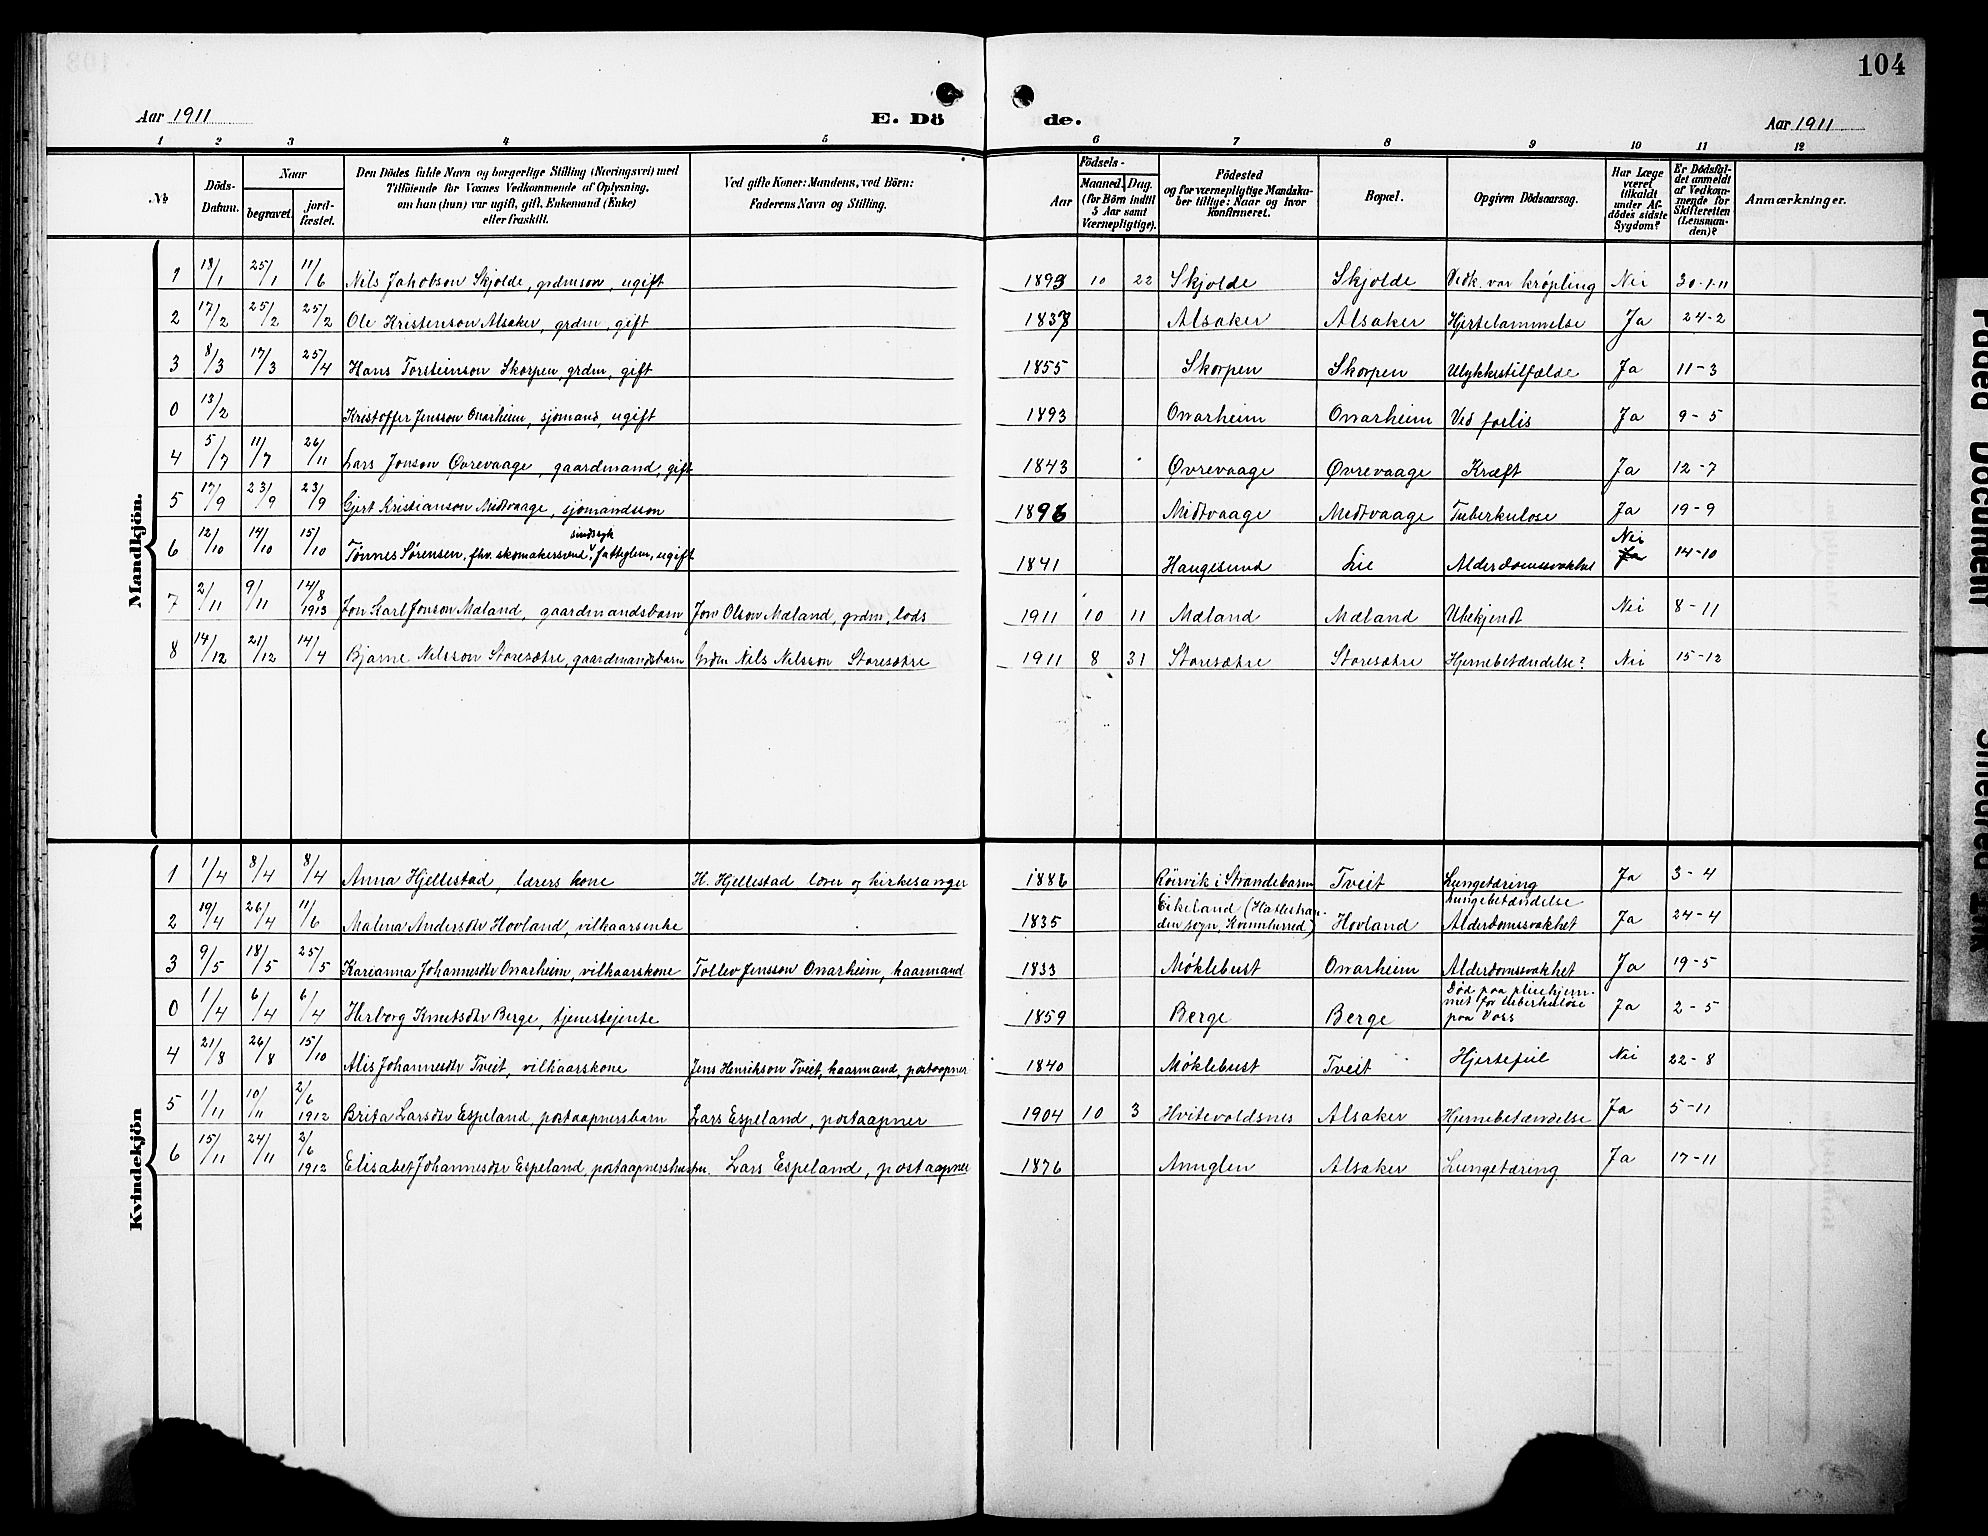 104
Aar 1911
E. Dö de.
Aar 1911
1 2 3 4 5 6 7 8 9 10 11 12
№
Döds-Datum.
Naar
begravet.
jordfæstet.
Den Dödes fulde Navn og borgerlige Stilling (Næringsvei) med
Tilföiende for Voxnes Vedkommende af Oplysning,
om han (hun) var ugift, gift, Enkemand (Enke)
eller fraskilt.
Ved gifte Koner: Mandens, ved Börn:
Faderens Navn og Stilling.
Födsels-
Aar
Maaned. Dag.
(for Börn indtil
5 Aar samt
Værnepligtige).
Födested
og for værnepligtige Mandskaber tillige: Naar og hvor
konfirmeret.
Bopæl.
Opgiven Dödsaarsag.
Har Læge
været
tilkaldt
under Afdödes sidste
Sygdom?
Er Dödsfaldet anmeldt
af Vedkommende for
Skifteretten
(Lensmanden)?
Anmærkninger.
Mandkjön.
1 18/1 25/1 11/6 Nils Jakobson Skjolde, grdmson, ugift 1893 10 22 Skjolde Skjolde Vedk. var krøpling Nei 30-1-11
2 17/2 25/2 25/2 Ole Kristenson Alsaker, grdm, gift 1837 Alsaker Alsaker Hjertelammelse Ja 24-2
3 8/3 17/3 25/4 Hans Torsteinson Skorpen, grdm, gift 1855 Skorpen Skorpen Ulykkestilfælde Ja 11-3
0 13/2 Kristoffer Jensson Onarheim, sjømand, ugift 1893 Onarheim Onarheim Ved forlis Ja 9-5
4 5/7 11/7 26/11 Lars Jonson Øvrevaage, gaardmand, gift 1843 Øvrevaage Øvrevaage Kræft Ja 12-7
5 17/9 23/9 23/9 Gjert Kristianson Midtvaage, sjømandsson 1896 Midtvaage Medtvaage Tuberkulose Ja 19-9
6 12/10 14/10 15/10 Tønnes Sørensen, fhv. skomakersvend, sindssyk fattiglem, ugift 1841 Haugesund Lie Alderdomssvakhet Nei Ja 14-10
7 2/11 9/11 14/8 1913 Jon Karl Jonson Mæland, gaardmandsbarn Jon Olson Mæland, grdm, lods 1911 10 11 Mæland Mæland Ubekjendt Nei 8-11
8 14/12 21/12 14/4 Bjarne Nilsson Storesætre, gaardmandsbarn Grdm Nils Nilsson Storesætre 1911 8 31 Storesætre Storesætre Hjernebetændelse? Nei 15-12
Kvindekjön
1 1/4 8/4 8/4 Anna Hjellestad, lærers kone H. Hjellestad lærer og kirkesanger 1886 Røirvik i Strandebarm Tveit Lungetæring Ja 3-4
2 19/4 26/4 11/6 Malena Andersdtr Hovland, vilkaarsenke 1835 Eikeland (Hatlestranden sogn, Kvinnherred) Hovland Lungebetændelse Alderdomssvakhet Ja 24-4
3 9/5 18/5 25/5 Karianna Johannesdtr Onarheim, vilkaarskone Tollev Jensson Onarheim, kaarmand 1833 Møklebust Onarheim Alderdomssvakhet Ja 19-5
0 1/4 6/4 6/4 Herborg Knutsdtr Berge, tjenestejente 1859 Berge Berge Død paa pleiehjemmet for tuberkuløse paa Voss Ja 2-5
4 21/8 26/8 15/10 Alis Johannesdtr Tveit, vilkaarskone Jens Henrikson Tveit, kaarmand, postaapner 1840 Møklebust Tveit Hjertefeil Nei 22-8
5 1/11 10/11 2/6 1912 Brita Larsdtr Espeland, postaapnersbarn Lars Espeland, postaapner 1904 10 3 Hvitevoldsnes Alsaker Hjernebetændelse Ja 5-11
6 15/11 24/11 2/6 1912 Elisabet Johannesdtr Espeland, postaapnershustru. Lars Espeland, postaapner 1876 Anuglen Alsaker Lungetæring Ja 17-11
Faded Document
Smeared Ink